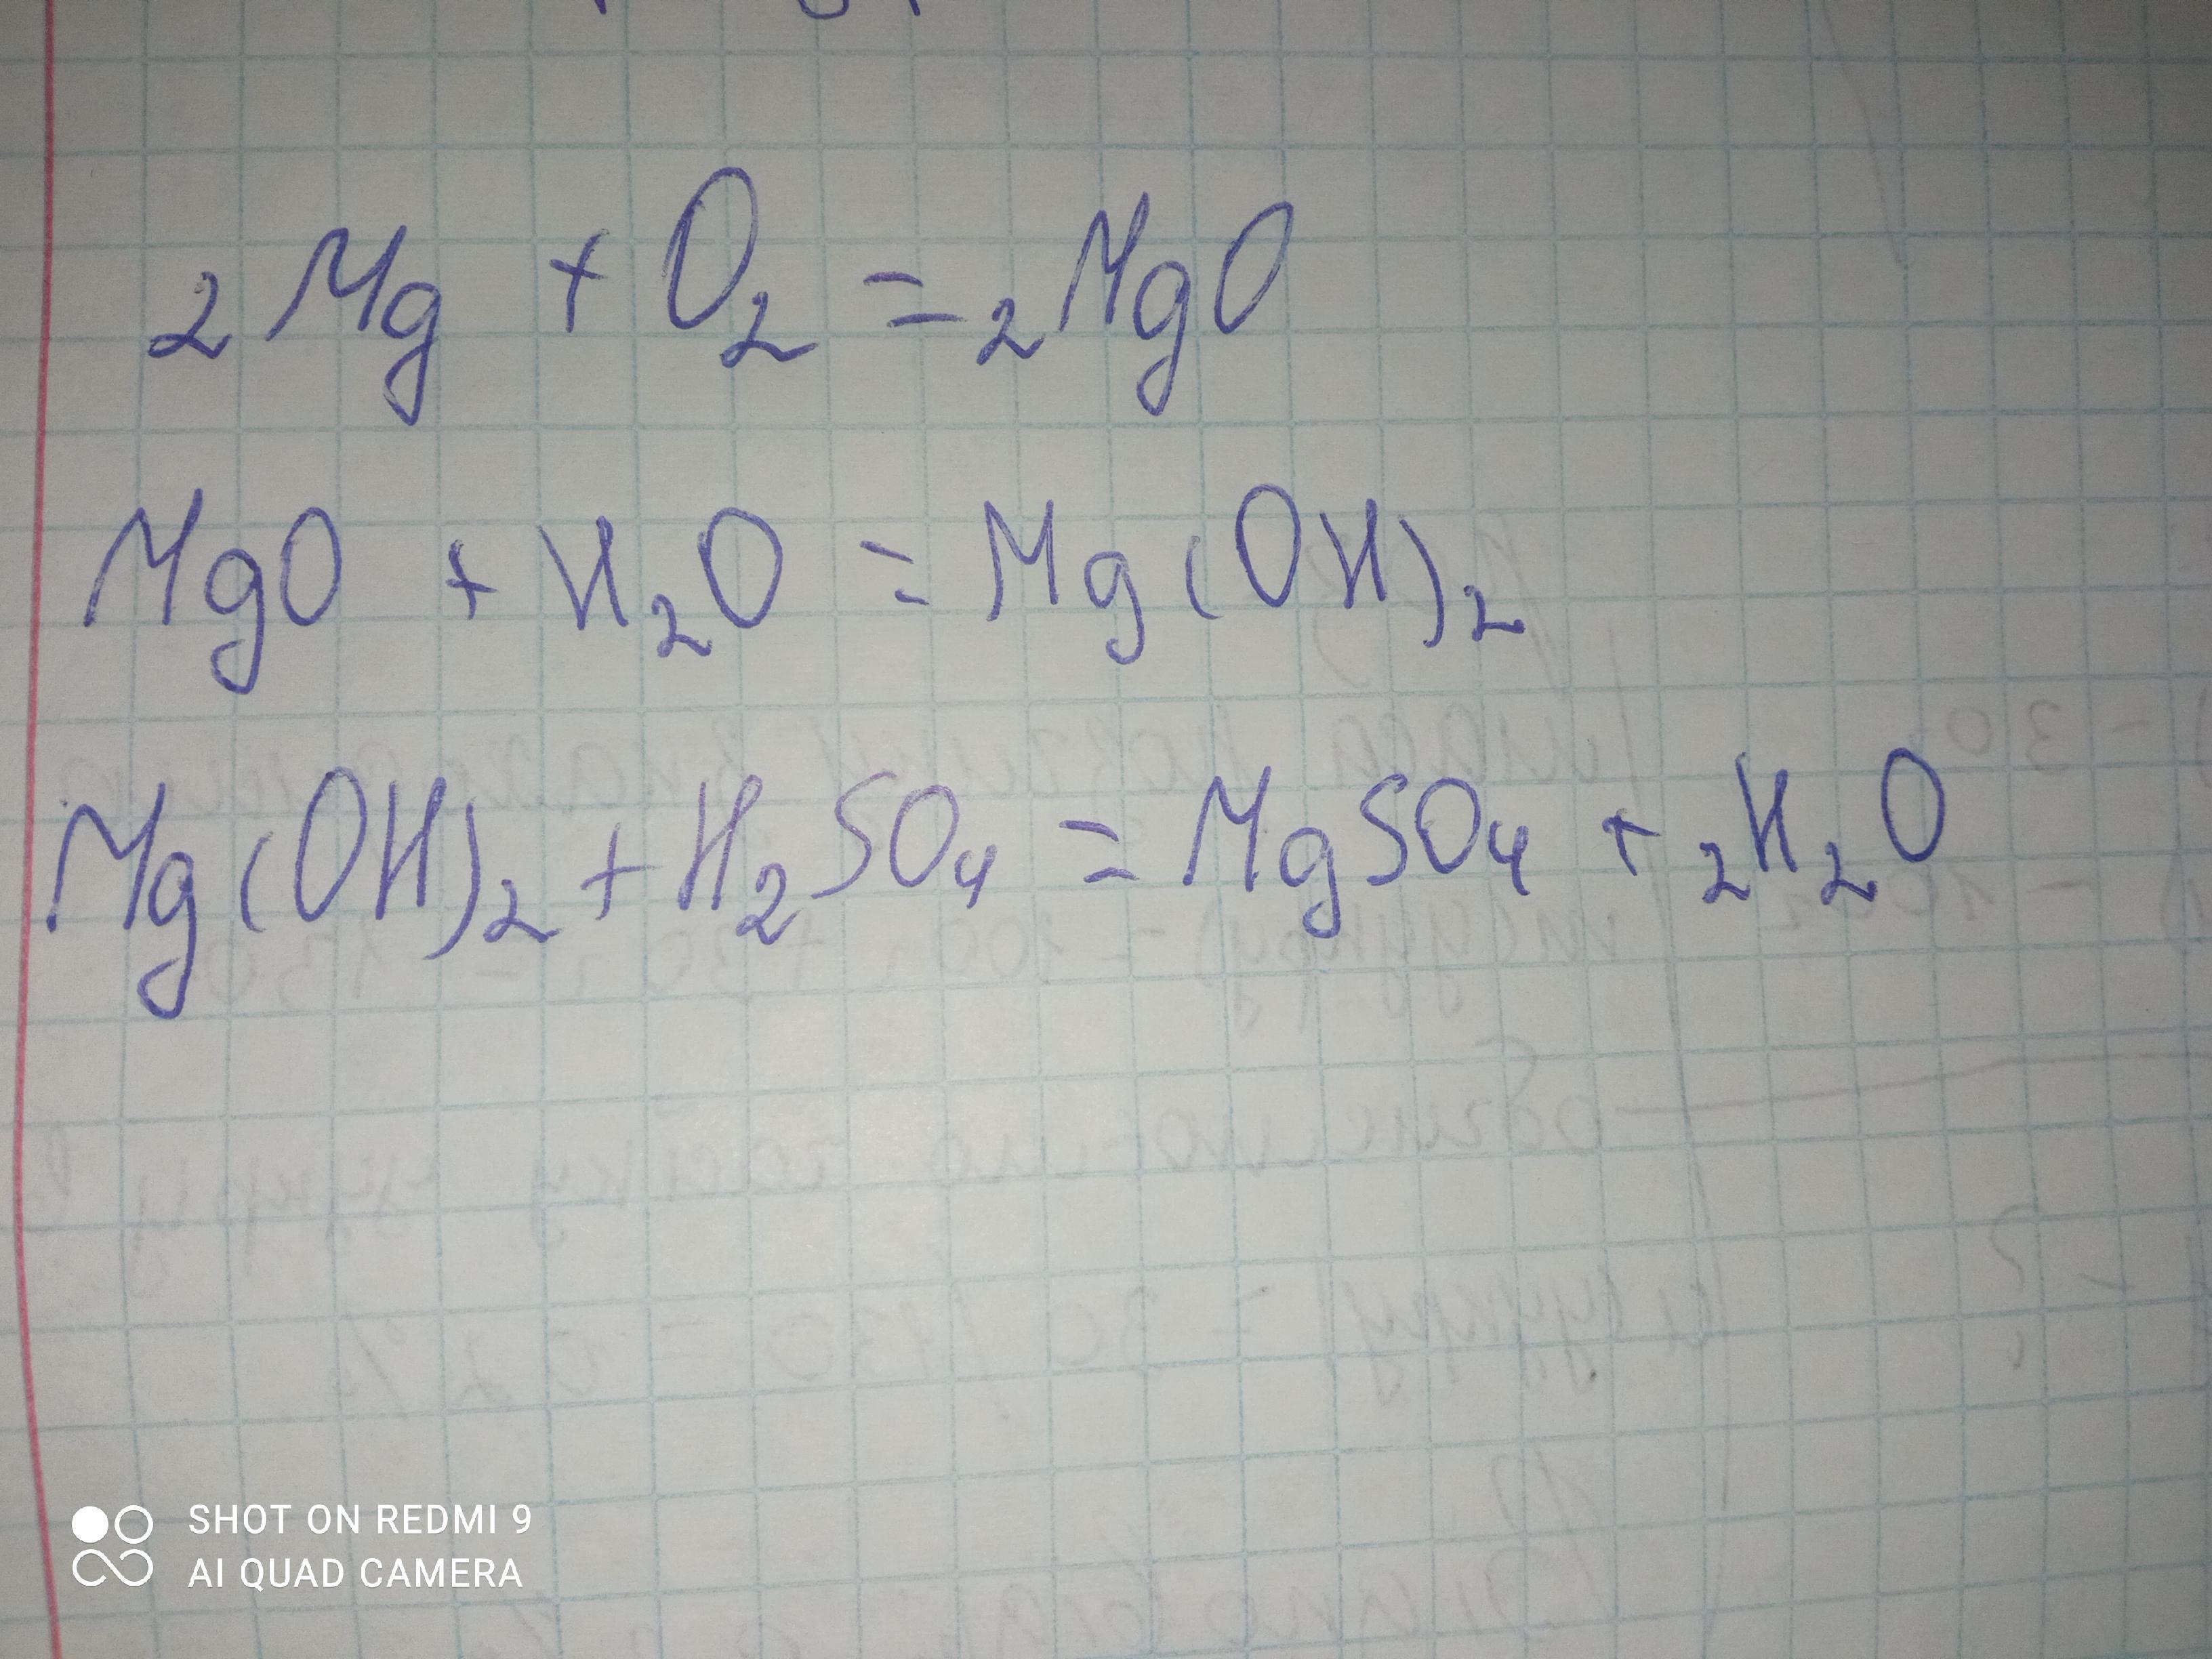 2Mg + O₂ = 2MgO
MgO + H₂O = Mg(OH)₂
Mg(OH)₂ + H₂SO₄ = MgSO₄ + 2H₂O
SHOT ON REDMI 9
AI QUAD CAMERA